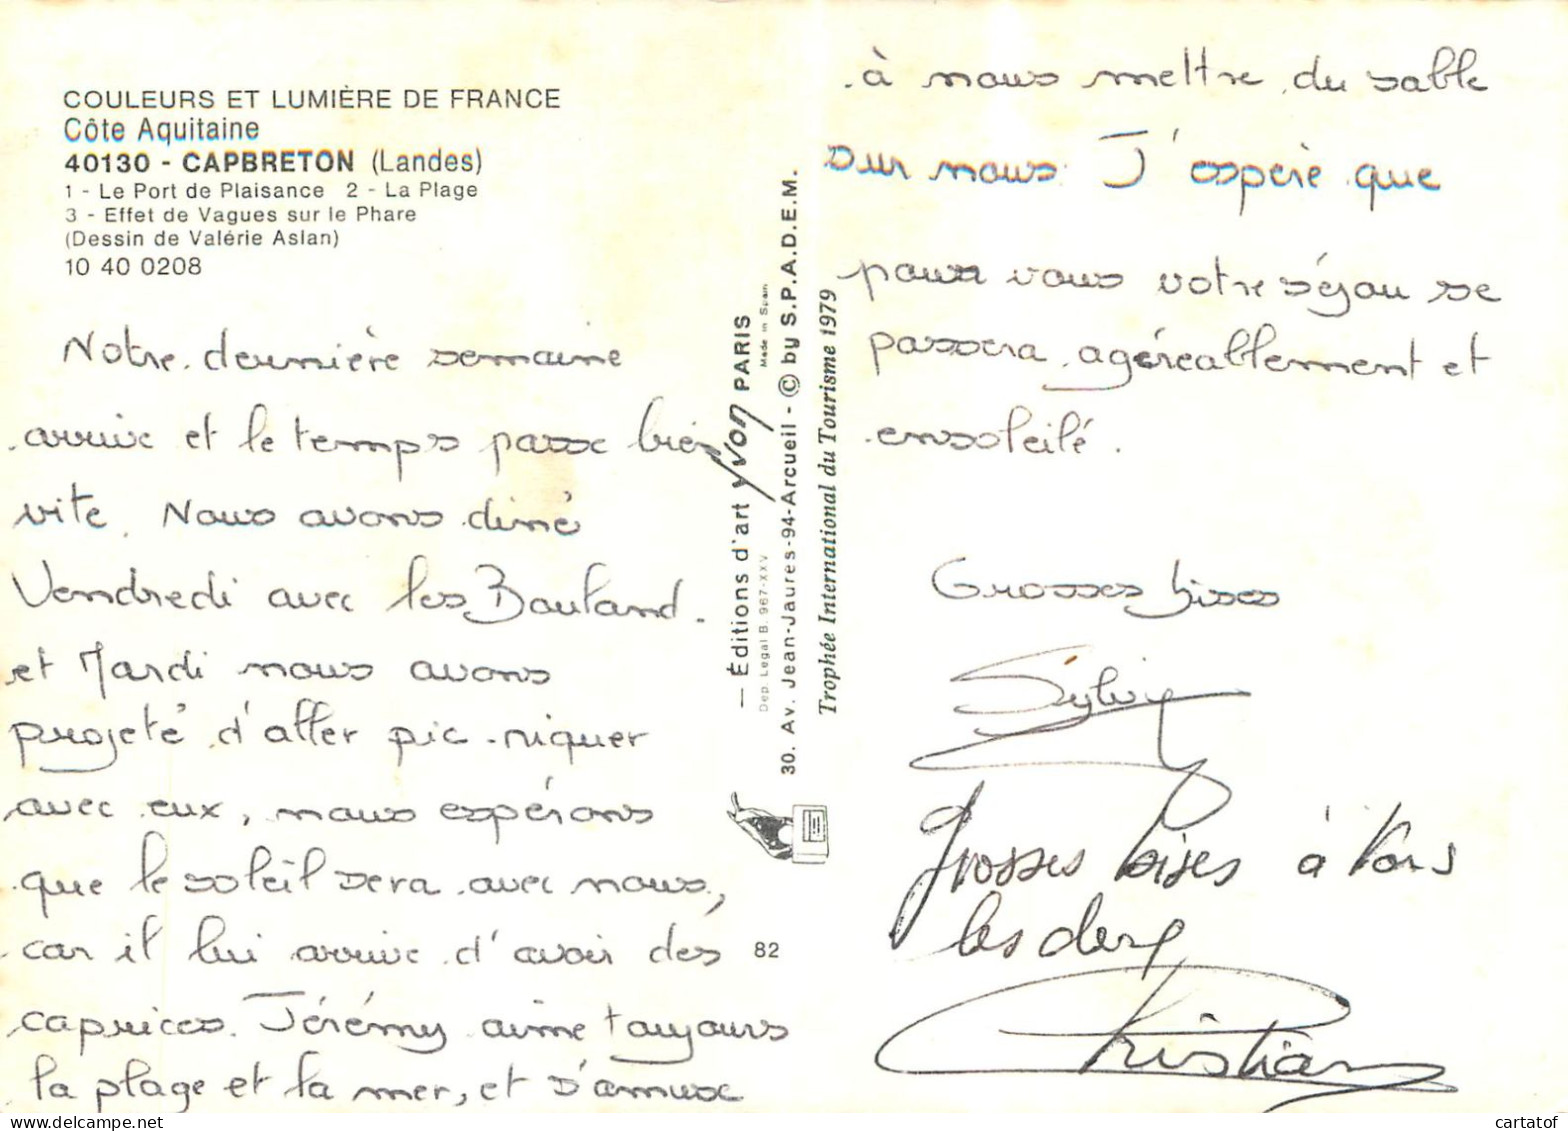 COULEURS ET LUMIÈRE DE FRANCE
Côte Aquitaine
40130 - CAPBRETON (Landes)
1 - Le Port de Plaisance 2 - La Plage
3 - Effet de Vagues sur le Phare
(Dessin de Valérie Aslan)
10 40 0208
Notre dernière semaine
arrive et le temps passe bien
vite. Nous avons diné
Vendredi avec les
et Mardi nous avons
projeté d'aller pic-niquer
avec eux, nous espérons
que le soleil sera avec nous,
car il lui arrive d'avoir des
caprices. Jérémy aime toujours
la plage et la mer, et s'amuse
— Éditions d'art yvon PARIS
Dep. Legal B. 967-XXV
Made in Spain
30. Av. Jean-Jaures-94-Arcueil - © by S.P.A.D.E.M.
Trophée International du Tourisme 1979
82
à nous mettre du sable
sur nous. J'espère que
pour vous votre séjou se
passera agéreablement et
ensoleilé.
Grosses bises
Sylvie
grosses bises à Vous
les deux
Christian
cartatof